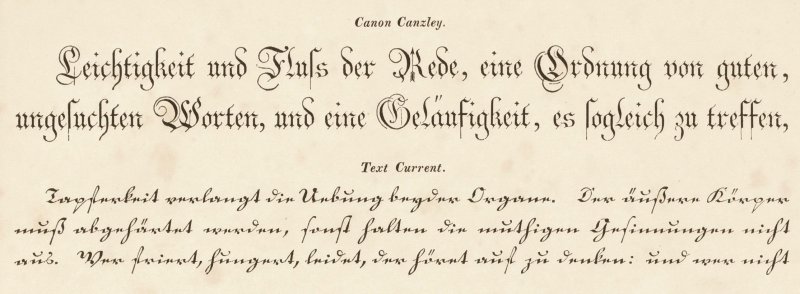 Canon Canzley.
Leichtigkeit und Fluſs der Rede, eine Ordnung von guten,
ungeſuchten Worten, und eine Geläufigkeit, es ſogleich zu treffen,
Text Current.
Tapferkeit verlangt die Uebung beyder Organe. Der äußere Körper
muß abgehärtet werden, ſonſt halten die muthigen Geſinnungen nicht
aus. Wer friert, hungert, leidet, der höret auf zu denken: und wer nicht